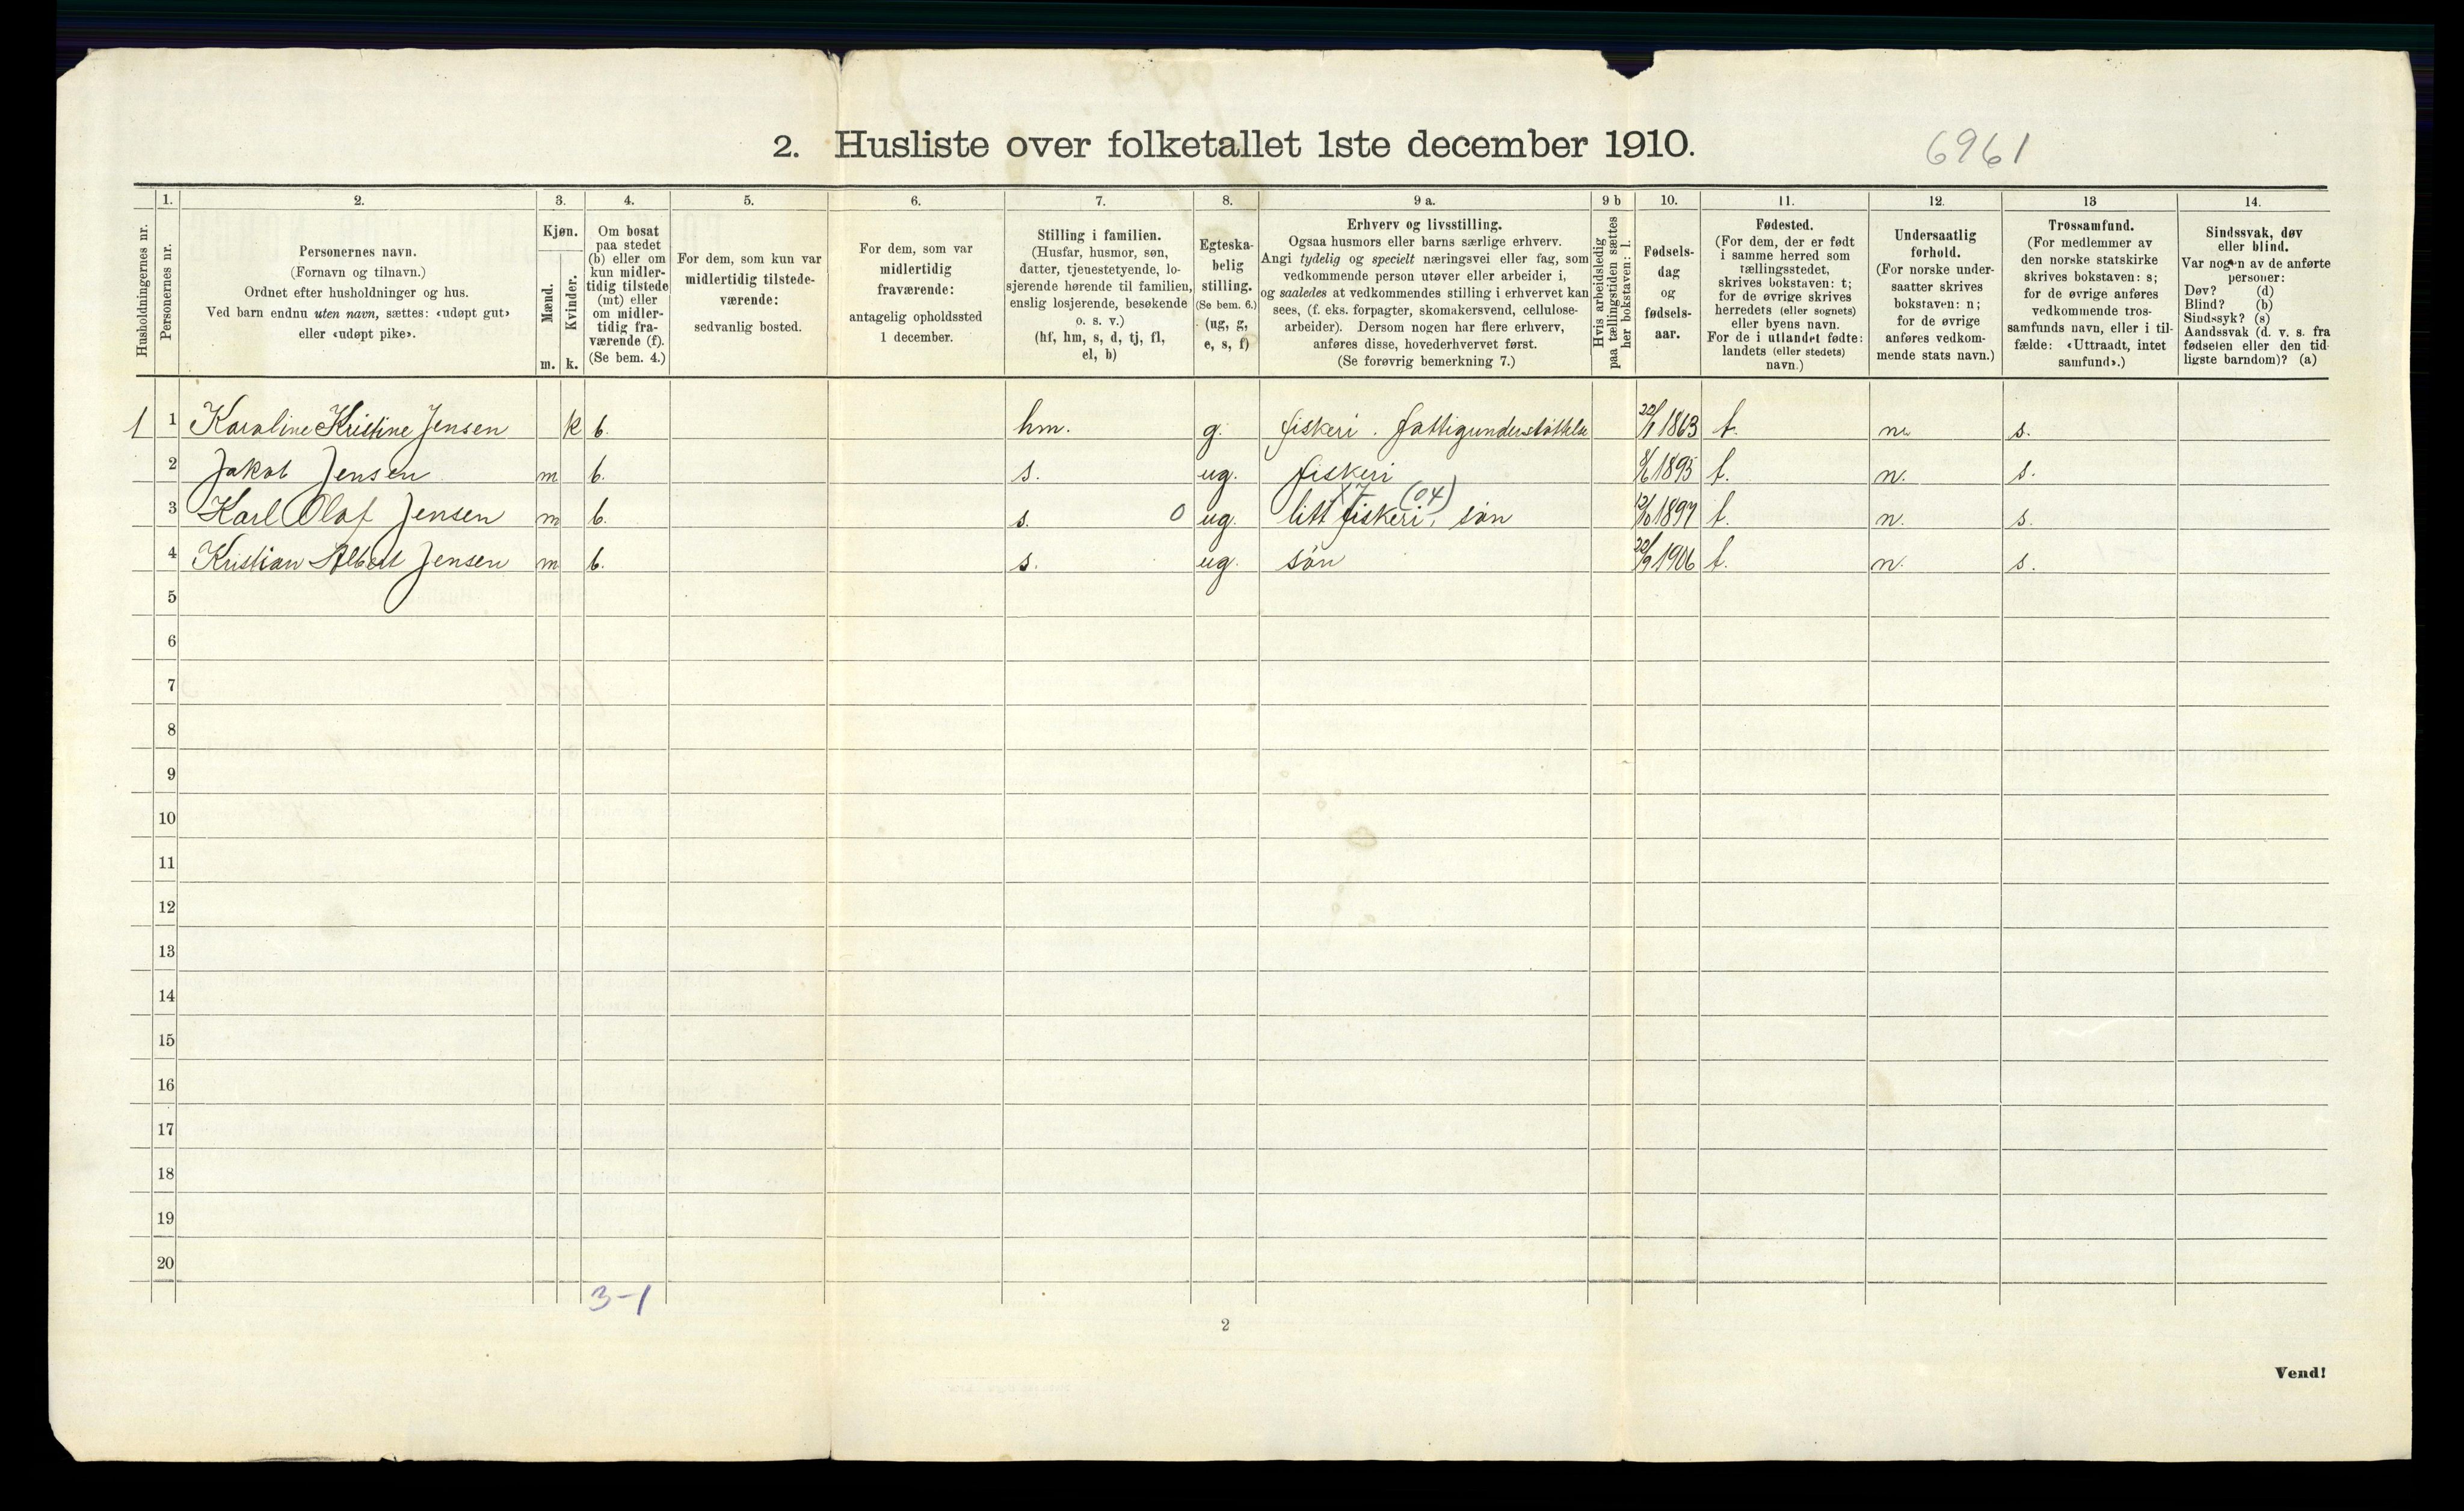 2. Husliste over folketallet 1ste december 1910.
6961
Husholdningernes nr.
1.
Personernes nr.
2.
Personernes navn.
(Fornavn og tilnavn.)
Ordnet efter husholdninger og hus.
Ved barn endnu uten navn, sættes: «udøpt gut»
eller «udøpt pike».
3.
Kjøn.
Mænd.
m.
Kvinder.
k.
4.
Om bosat
paa stedet
(b) eller om
kun midler-
tidig tilstede
(mt) eller
om midler-
tidig fra-
værende (f).
(Se bem. 4.)
5.
For dem, som kun var
midlertidig tilstede-
værende:
sedvanlig bosted.
6.
For dem, som var
midlertidig
fraværende:
antagelig opholdssted
1 december.
7.
Stilling i familien.
(Husfar, husmor, søn,
datter, tjenestetyende, lo-
sjerende hørende til familien,
enslig losjerende, besøkende
o. s. v.)
(hf, hm, s, d, tj, fl,
el, b)
8.
Egteska-
belig
stilling.
(Se bem. 6.)
(ug, g,
e, s, f)
9 a.
Erhverv og livsstilling.
Ogsaa husmors eller barns særlige erhverv.
Angi tydelig og specielt næringsvei eller fag, som
vedkommende person utøver eller arbeider i,
og saaledes at vedkommendes stilling i erhvervet kan
sees, (f. eks. forpagter, skomakersvend, cellulose-
arbeider). Dersom nogen har flere erhverv,
anføres disse, hovederhvervet først.
(Se forøvrig bemerkning 7.)
9 b
Hvis arbeidsledig
paa tællingstiden sættes
her bokstaven: l.
10.
Fødsels-
dag
og
fødsels-
aar.
11.
Fødested.
(For dem, der er født
i samme herred som
tællingsstedet,
skrives bokstaven: t;
for de øvrige skrives
herredets (eller sognets)
eller byens navn.
For de i utlandet fødte:
landets (eller stedets)
navn.)
12.
Undersaatlig
forhold.
(For norske under-
saatter skrives
bokstaven: n;
for de øvrige
anføres vedkom-
mende stats navn.)
13
Trossamfund.
(For medlemmer av
den norske statskirke
skrives bokstaven: s;
for de øvrige anføres
vedkommende tros-
samfunds navn, eller i til-
fælde: «Uttraadt, intet
samfund».)
14.
Sindssvak, døv
eller blind.
Var nogen av de anførte
personer:
Døv? (d)
Blind? (b)
Sindssyk? (s)
Aandssvak (d. v. s. fra
fødselen eller den tid-
ligste barndom)? (a)
1 1 Karoline Kristine Jensen k b. hm. g. fiskeri. fattigunderstøttelse 22/1 1863 t. n. s.
2 Jakob Jensen m b. s. ug. fiskeri 1895 t. n. s.
X7 (04)
3 Karl Olaf Jensen m b. s. 0 ug. litt fiskeri, søn 12/10 1897 t. n. s.
4 Kristian Albert Jensen m b. s. ug. søn 22/9 1906 t. n. s.
5
6
7
8
9
10
11
12
13
14
15
16
17
18
19
20
3-1
2
Vend!